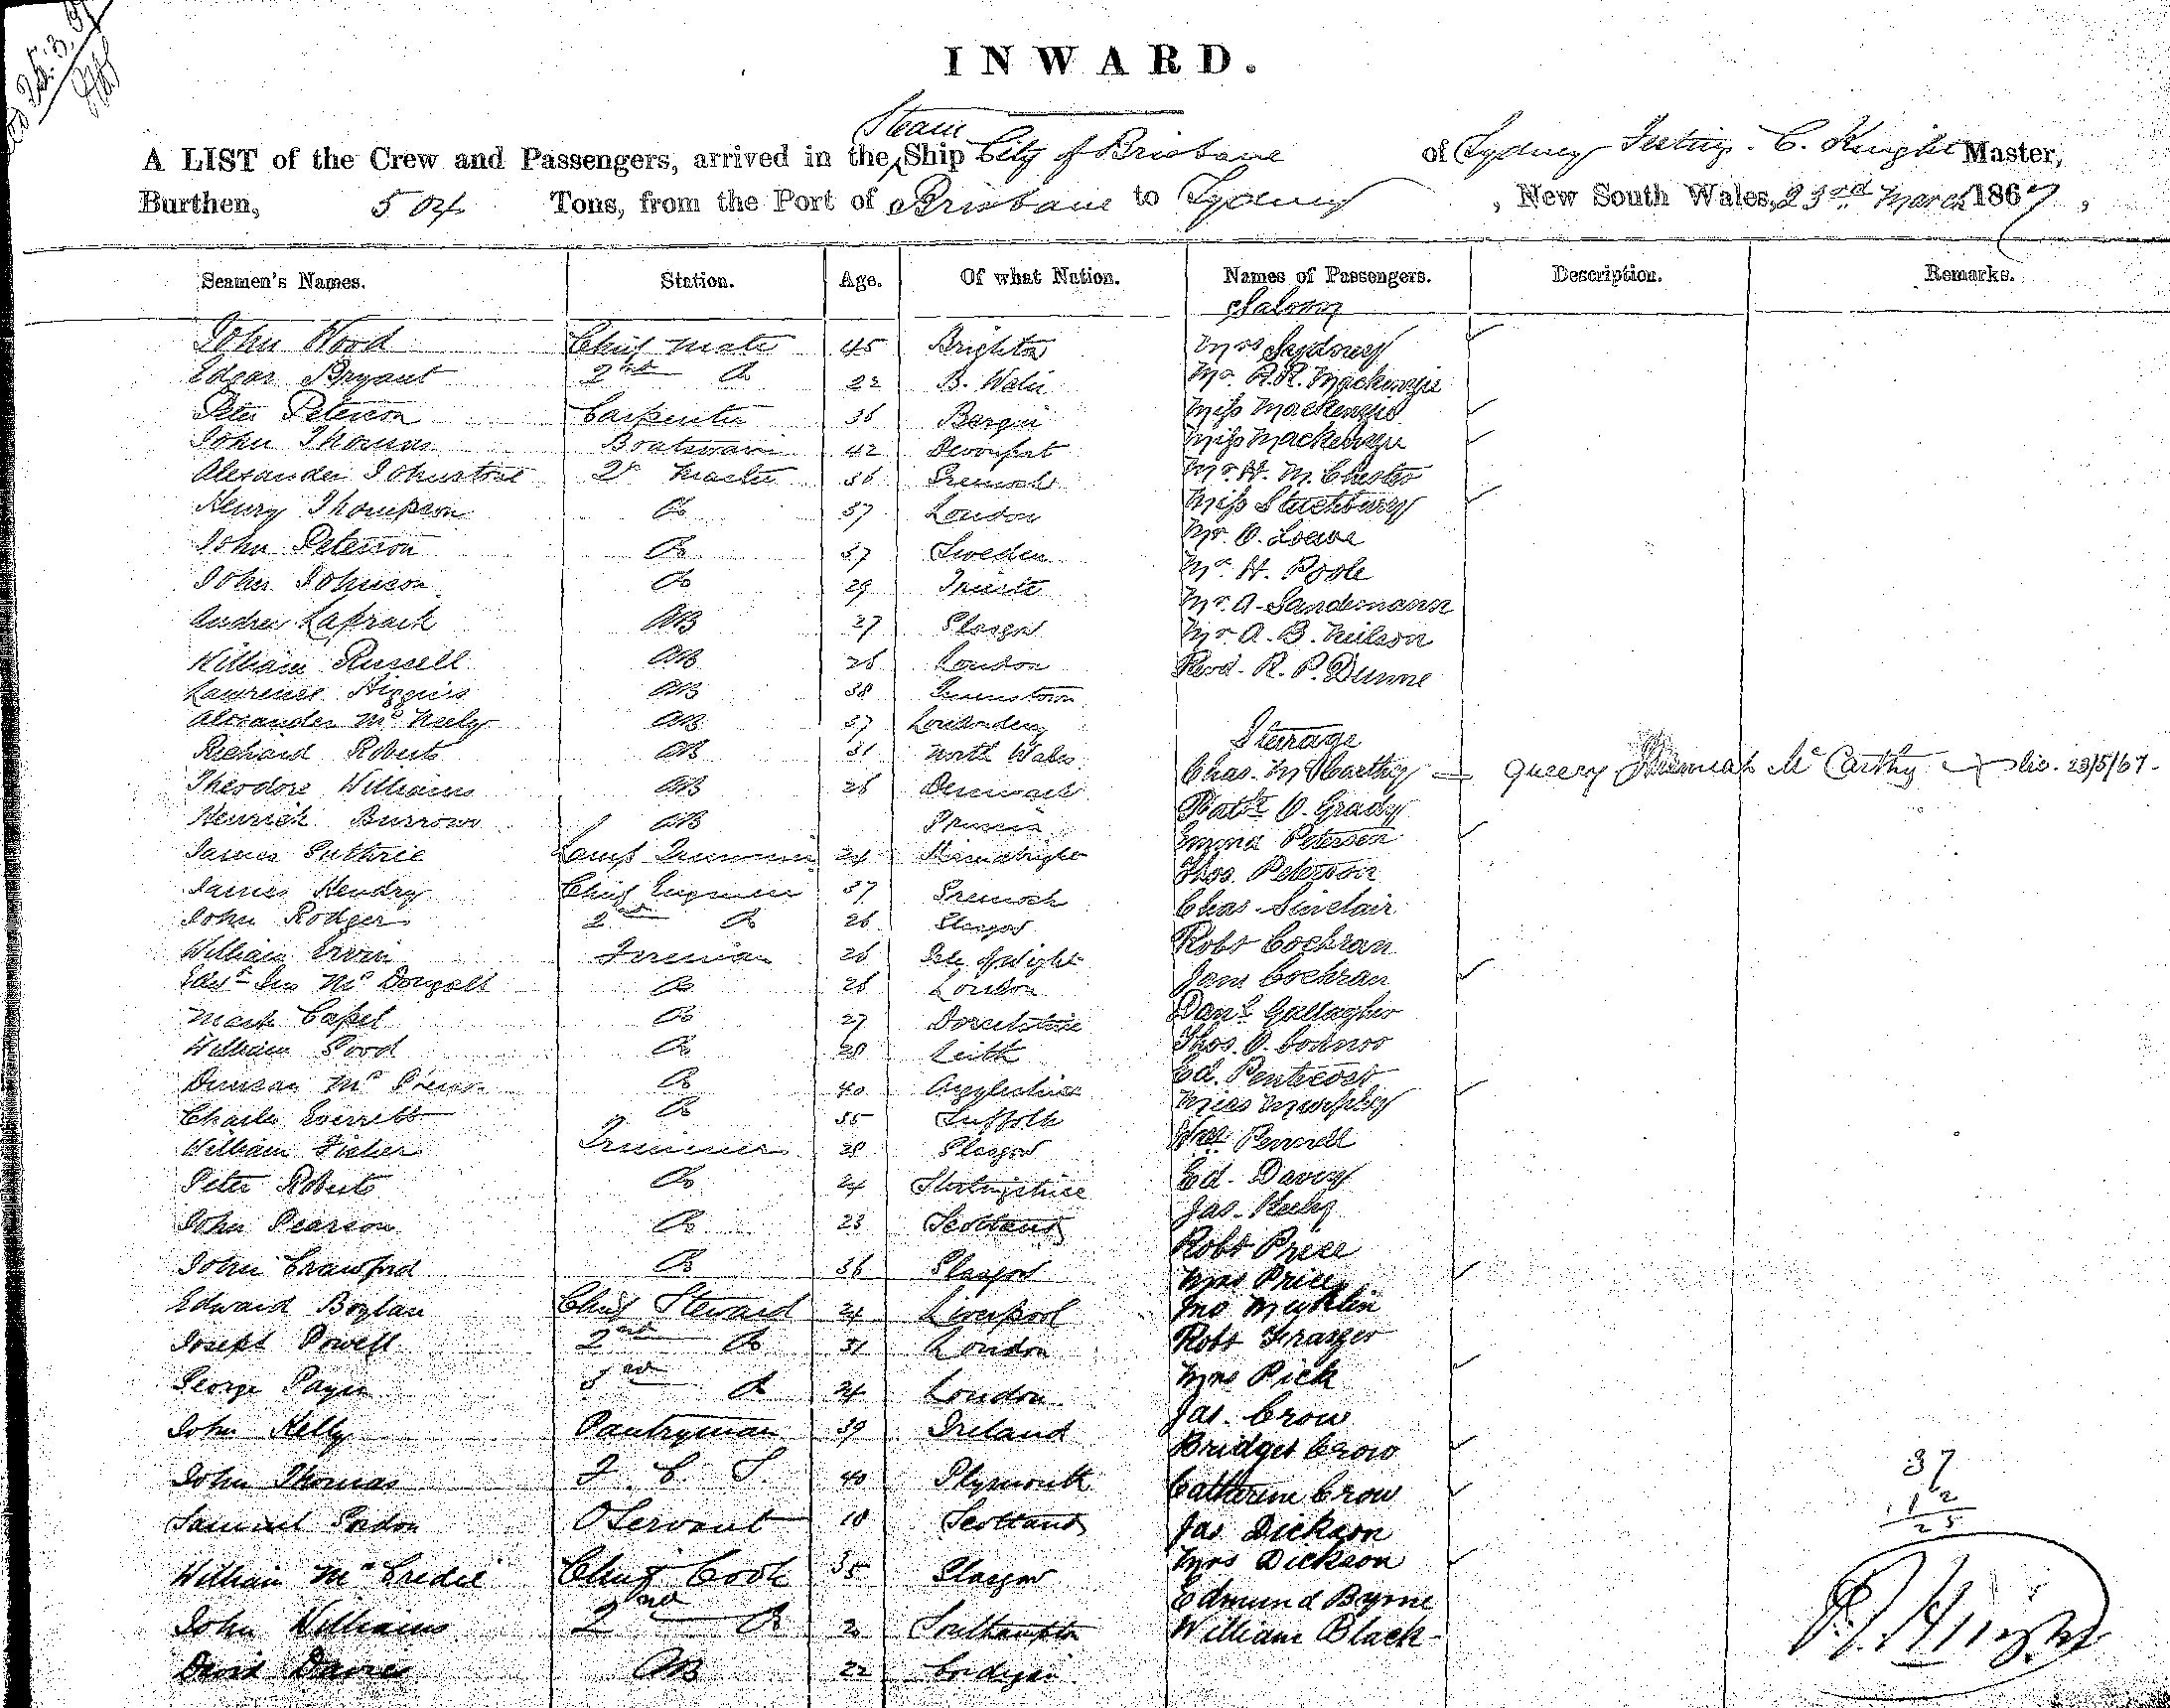 INWARD.
A LIST of the Crew and Passengers, arrived in the Steam Ship City of Brisbane of Sydney C. Knight Master,
Burthen, 504 Tons, from the Port of Brisbane to Sydney, New South Wales, 23rd March 1867,
Seamen's Names. Station. Age. Of what Nation. Names of Passengers. Description. Remarks.
Saloon
John Wood Chief Mate 45 Brighton Mrs Sydney
Edgar Bryant 2nd Do 22 Mr. R. R. Mackenzie
Peter Peterson Carpenter 36 Bergen Miss Mackenzie
John Thomas Boatswain 42 Devonport Miss Mackenzie
Alexander Johnstone Qr Master 36 Greenock Mr H. M. Chester
Henry Thompson Do 37 London Miss Stutchbury
John Peterson Do 37 Sweden Mr. O. Loewe
John Johnson Do 29 Trieste Mr H. Poole
Andrew AB 27 Glasgow Mr. A. Sandemann
William Russell AB 26 London Mr A. B. Neilson
Lawrence Higgins AB 38 Queenstown Revd. R. P. Dunne
Alexander McNeely AB 37 Londonderry
Steerage
Richard Roberts AB 31 North Wales Chas. McCarthy — query Jeremiah McCarthy 23/5/67.
Theodore Williams AB 26 Denmark Patk O. Grady
Henrich Burrows AB Prussia Emma Peterson
James Guthrie Lamp Trimmer 24 Thos. Peterson
James Hendry Chief Engineer 37 Greenock Chas. Sinclair
John Rodger 2nd Do 26 Glasgow Robt Cochran
William Ervin Fireman 26 Isle of Wight Jane Cochran
McDougall Do 26 London Danl Gallagher
Mark Capel Do 27 Dorsetshire Thos. O. Connor
William Do 28 Leith Ed. Pentecost
Duncan Do 40 Argyleshire Miss Murphy
Charles Everett Do 35 Suffolk Pennell
William Fisher Trimmer 28 Glasgow Ed. Davey
Peter Roberts Do 24 Stirlingshire Jas. Keely
John Pearson Do 23 Scotland Robt Price
John Crawford Do 36 Glasgow Mrs Price
Edward Boylan Chief Steward 24 Liverpool Jno
Joseph Powell 2nd Do 31 London Robt Frazer
George Payne 3rd Do 24 London Mrs Pick
John Kelly Pantryman 39 Ireland Jas. Crow
John Thomas F C S. 40 Plymouth Bridget Crow
Samuel Gordon O Servant 18 Scotland Catherine Crow
Jas Dickson
William McCredie Chief Cook 35 Glasgow Mrs Dickson
Edmund Byrne
John Williams 2nd Do 20 Southampton William Black
David Davies AB 22 Cardigan
37
12
25
C. Knight